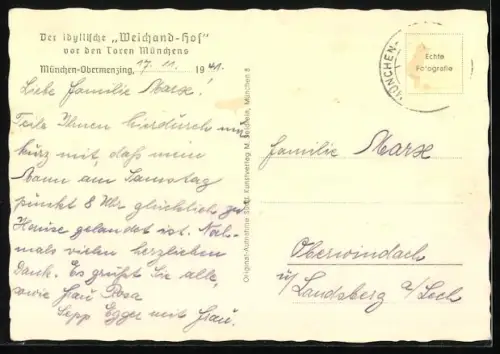 Der idyllische „Weichand-Hof"
vor den Toren Münchens
München-Obermenzing, 17. 11. 1941.
Liebe Familie Marx!
Teile Ihnen hierdurch nur
kurz mit, daß mein
Mann am Samstag
punkt 8 Uhr glücklich zu
Hause gelandet ist. Noch-
mals vielen herzlichen
Dank. Es grüßt Sie alle,
sowie Frau Rosa
Sepp Egger mit Frau.
Original-Aufnahme Kunstverlag M. München 8
MÜNCHEN
Echte
Fotografie
Familie Marx
Oberwindach
ü/ Landsberg a/Lech